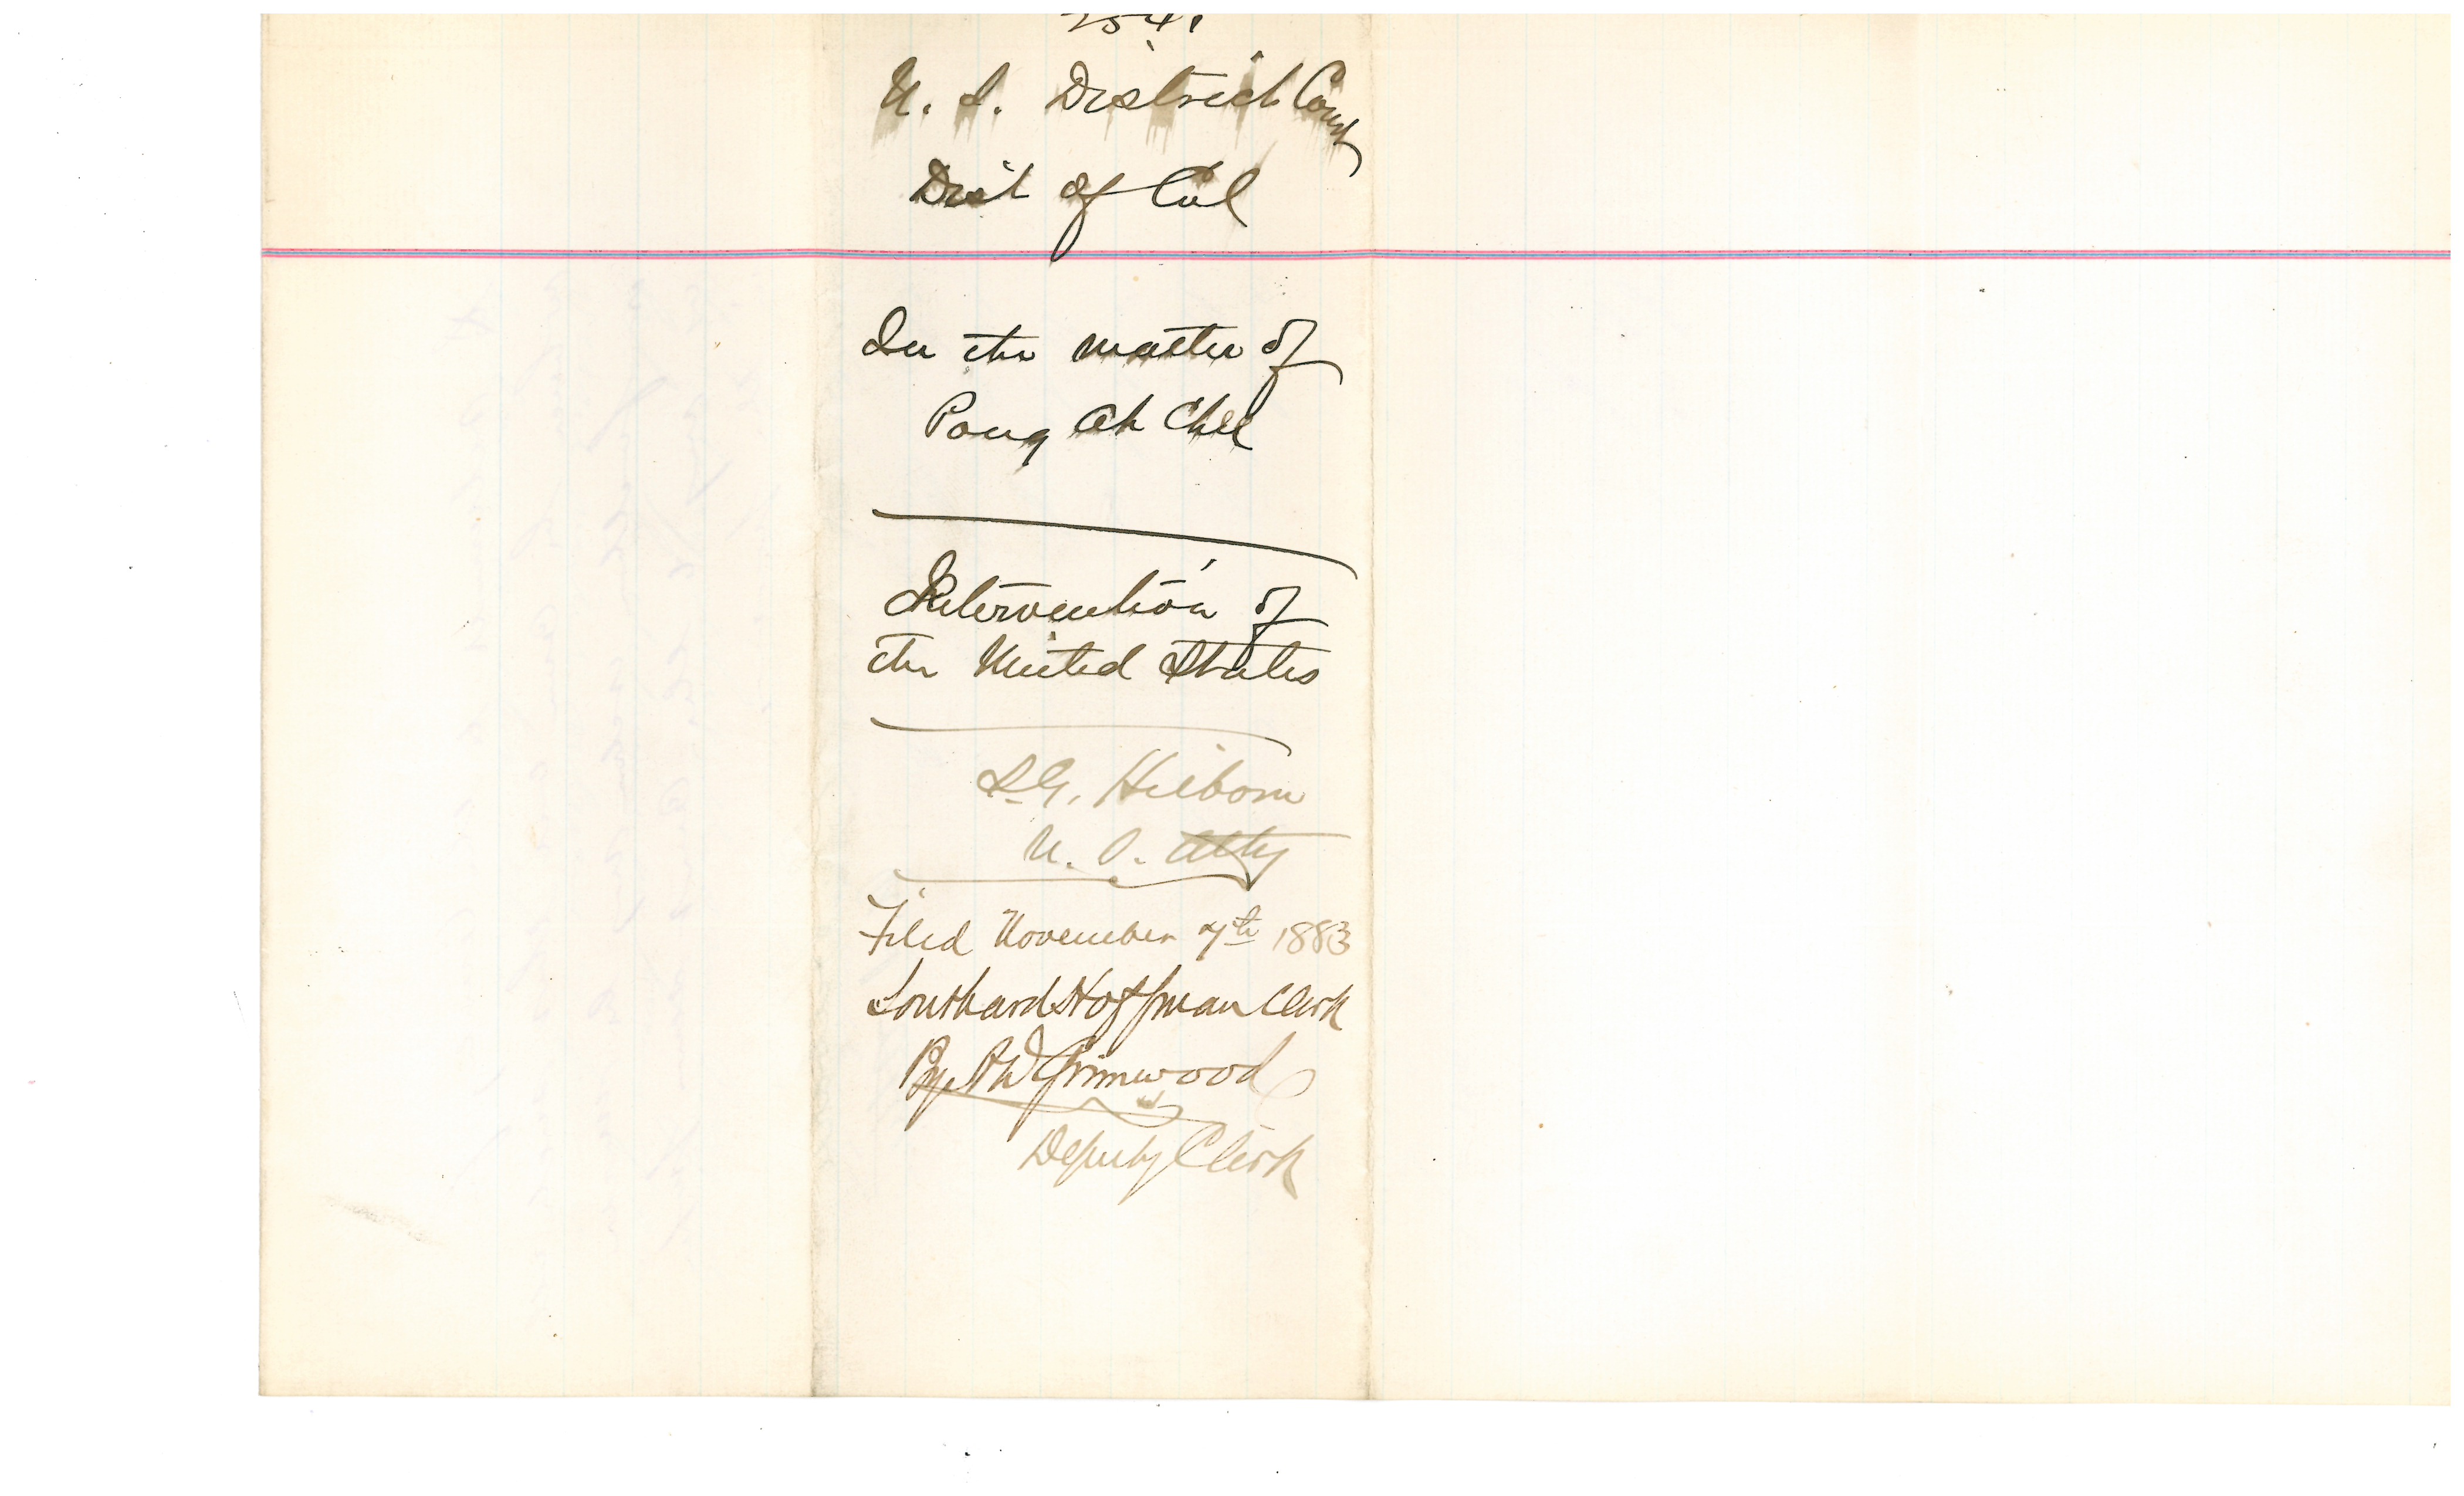 U. S. District Court
Dist of Cal
In the matter of
Pong Ah Chee
Intervention of
the United States
S.G. Hilborn
U. S. Atty
Filed November 7th 1883
Southard Hoffman Clerk
By
Grimwood
Deputy Clerk